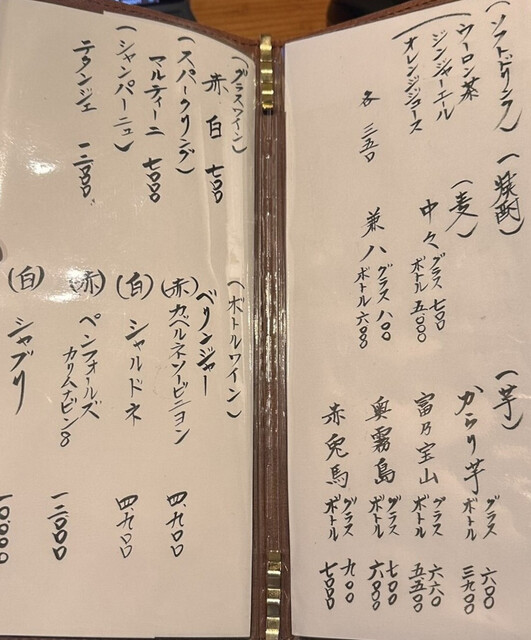 (ソフトドリンク)
ウーロン茶
ジンジャーエール
オレンジジュース
各 三五〇
(焼酎)
(麦)
中々 グラス 七〇〇
ボトル 五〇〇〇
兼八 グラス 八〇〇
ボトル 六〇〇〇
(芋)
からり芋 グラス 六〇〇
ボトル 三九〇〇
富乃宝山 グラス 六六〇
ボトル 五五〇〇
奥霧島 グラス 七〇〇
ボトル 六〇〇〇
赤兎馬 グラス 九〇〇
ボトル 七〇〇〇
(グラスワイン)
赤 白 七〇〇
(スパークリング)
マルティーニ 七〇〇
(シャンパーニュ)
テタンジェ 一二〇〇〇
(ボトルワイン)
ベリンジャー
(赤) カベルネソービニヨン 四、九〇〇
(白) シャルドネ 四、九〇〇
(赤) ペンフォールズ
カリムナビン8 一二〇〇〇
(白) シャブリ